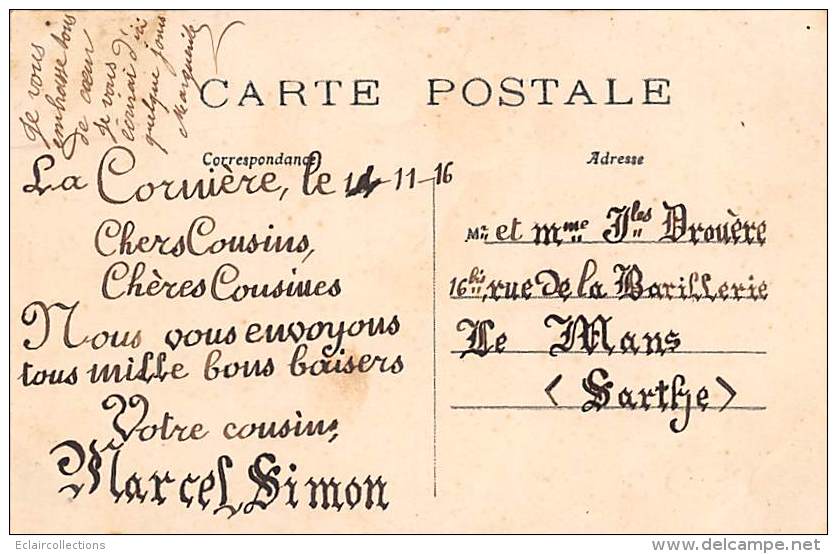 Je vous
embrasse tous
de cœur
Je vous
écrirai d'ici
quelque jours
Marguerite
CARTE POSTALE
Correspondance
Adresse
La Cornière, le 11-11-16
Chers Cousins,
Chères Cousines
Nous vous envoyons
tous mille bons baisers
Votre cousin,
Marcel Simon
Mr et mme Jles Drouère
16bis, rue de la Barillerie
Le Mans
(Sarthe)
Eclaircollections
delcampe.net